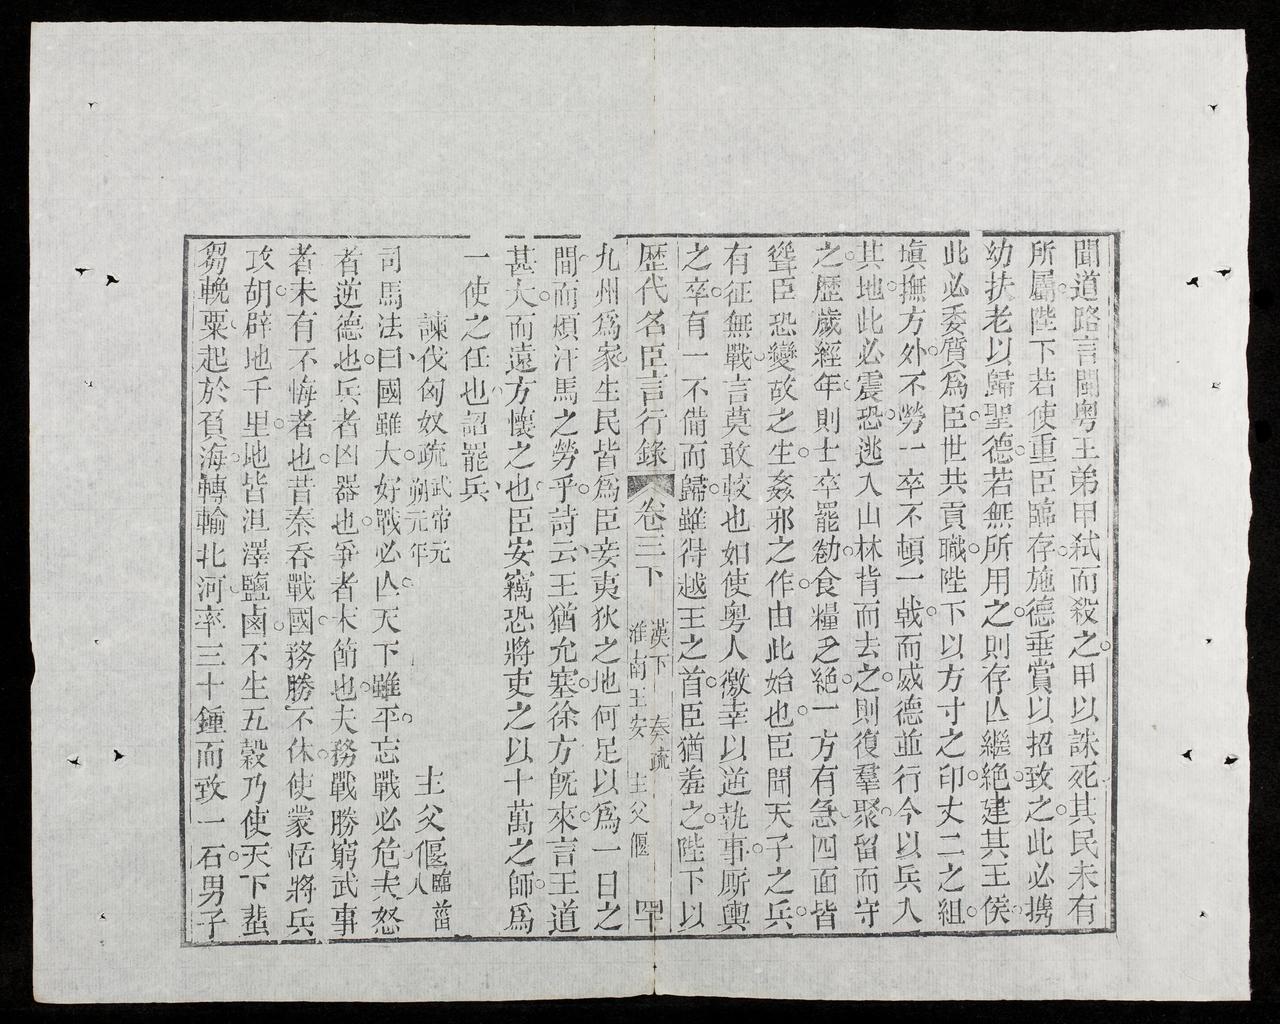 聞道路言閩粤王弟甲弑而殺之甲以誅死其民未有
所屬陛下若使重臣臨存施德垂賞以招致之此必㩦
幼扶老以歸聖德若無所用之則存亾繼絶建其王侯
此必委質爲臣世共貢職陛下以方寸之印丈二之組
塡撫方外不勞一卒不頓一戟而威德並行今以兵入
其地此必震恐逃入山林背而去之則復羣聚留而守
之歷歲經年則士卒罷勌食糧乏絶一方有急四面皆
聳臣恐變故之生姦邪之作由此始也臣聞天子之兵
有征無戰言莫敢較也如使粤人徼幸以逆執事厮輿
之卒有一不備而歸雖得越王之首臣猶羞之陛下以
歷代名臣言行錄 卷三下 漢下 奏疏 淮南王安 主父偃
九州爲家生民皆爲臣妾夷狄之地何足以爲一日之
間而煩汗馬之勞乎詩云王猶允塞徐方旣來言王道
甚大而遠方懷之也臣安竊恐將吏之以十萬之師爲
一使之任也詔罷兵
諫伐匈奴疏武帝元朔元年 主父偃臨菑人
司馬法曰國雖大好戰必亾天下雖平忘戰必危夫怒
者逆德也兵者凶器也爭者末節也夫務戰勝窮武事
者未有不悔者也昔秦吞戰國務勝不休使蒙恬將兵
攻胡辟地千里地皆沮澤鹽鹵不生五穀乃使天下蜚
芻輓粟起於負海轉輸北河率三十鍾而致一石男子